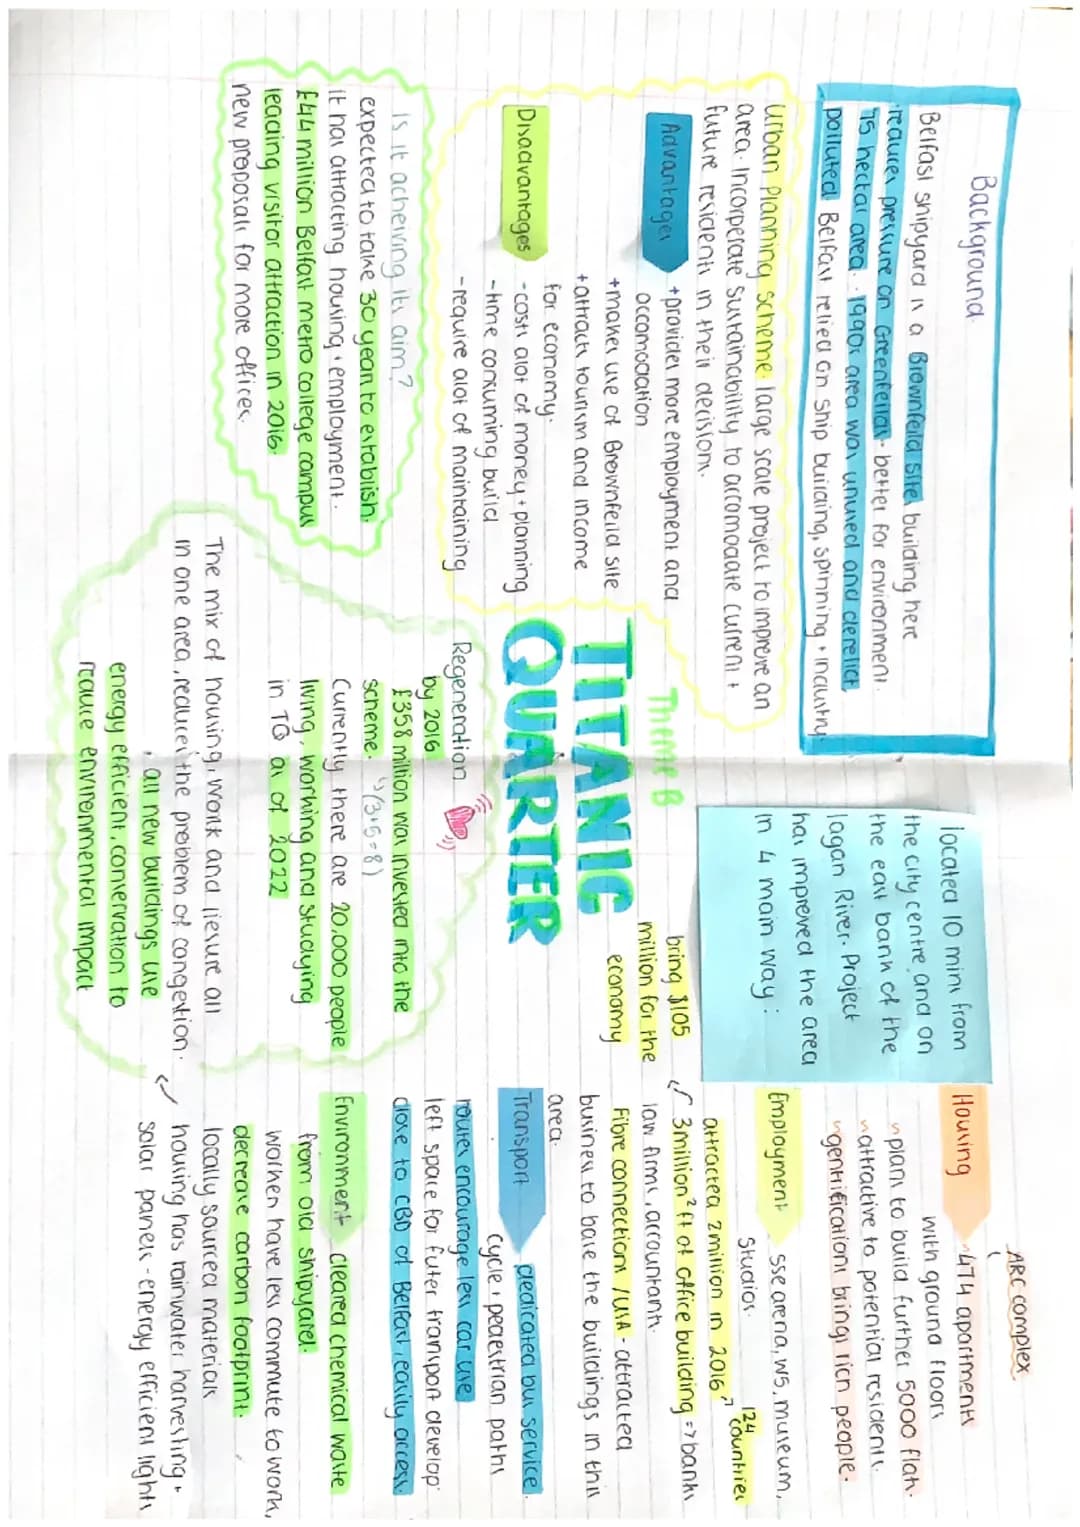 Background
Belfast shipyard is a Brownfeild site, building here
reduces pressure on Greenfeilds - better for environment.
75 hectar area. 1990s area was unused and derelict,
polluted. Belfast relied on ship building, spinning + industry
Urban Planning scheme: large scale project to improve an
area. Incorperate Sustainability to accomodate current +
future residents in their decisions.
Advantages
+provides more employment and
accomodation
+makes use of Brownfeild site
+attracts tourism and income
for economy.
Disadvantages
- costs alot of money + planning
- time consuming build
- require alot of maintaining
Is it acheiving its aim?
expected to take 30 years to establish.
it has attracting housing + employment.
£44 million Belfast metro college campus
leading visitor attraction in 2016.
new proposals for more offices.
Theme B
TITANIC
QUARTER
Regeneration
by 2016
£358 million was invested into the
scheme. (3+5=8)
Currently there are 20,000 people
living, working and studying
in TQ as of 2022
The mix of housing, work and liesure all
in one area, reduces the problem of congestion.
. all new buildings use
energy efficient, conservation to
reduce environmental impact
located 10 mins from
the city centre and on
the east bank of the
lagan River. Project
has improved the area
in 4 main way:
ARC complex
Housing
474 apartments
with ground floors
plans to build further 5000 flats.
attractive to potential residents.
gentrifications brings rich people.
Employment
sse arena, W5, museum,
Studios.
attracted 2 million in 2016
124
countries
3 million² ft of office building => banks
law firms, accountants.
bring $105
million for the
economy
Fibre connections /USA - attracted
business to base the buildings in this
area.
Transport
dedicated bus service.
cycle + pedestrian paths
routes encourage less car use
left space for futer transport develop
close to CBD of Belfast, easily access.
Environment
cleared chemical waste
from old shipyard.
workers have less commute to work,
decrease carbon footprint.
locally sourced materials
housing has rainwater harvesting +
solar panels - energy efficient lights